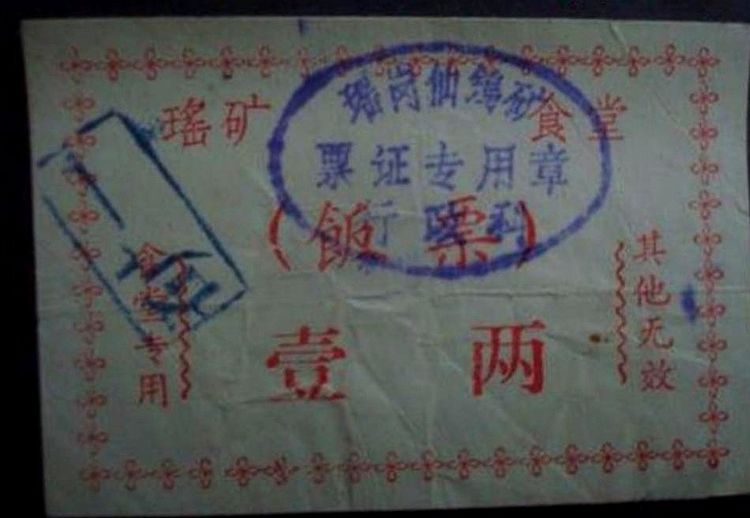 瑶矿 食堂
瑶岗仙钨矿
票证专用章
行政科
(飯票)
壹 两
食堂专用
其他无效